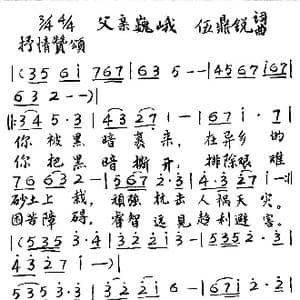 3/4 4/4 父亲巍峨 伍鼎銳 詞曲
抒情贊頌
|(35 6 i 767|63 5 - -|4567 i67|
63 2 - -)|
|:34 5·3|43 2 3·|67 i·7|
你 被黑暗裹来, 在异乡的
你 把黑暗撕开, 排除艰难
76 63 2 -|567 2·3|4·3 27 i|
砂土上 栽, 頑強抗击人祸天灾。
困苦障 碍。睿智远見趋利避害。
|(535 3·4|32 2i 3-|535 2·3|
4327 i - -)|
535 3·3|32 2 i -|67i 2·2|